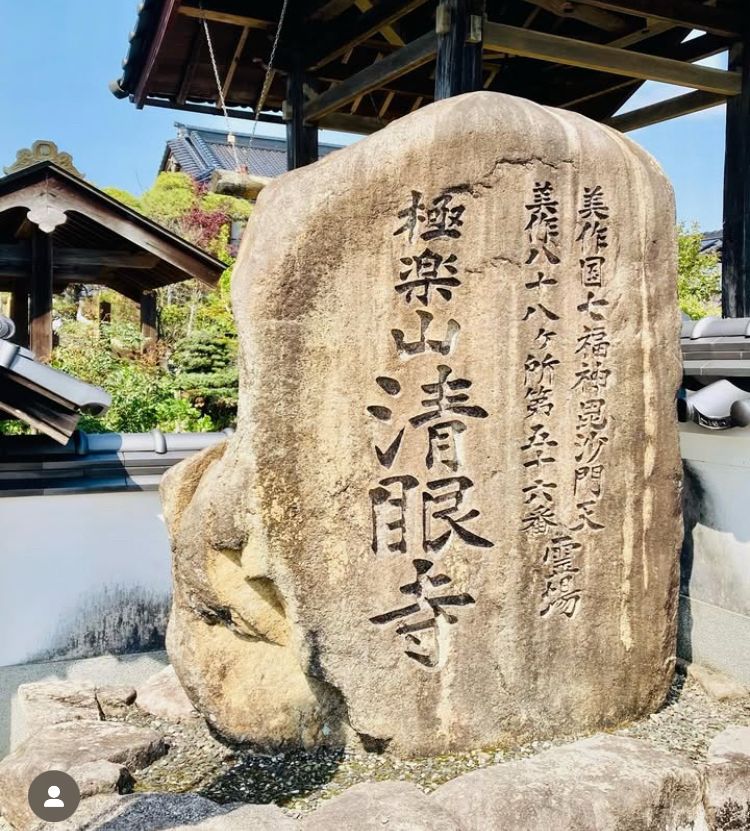 美作国七福神毘沙門天
美作八十八ヶ所第五十六番
霊場
極楽山
清眼寺